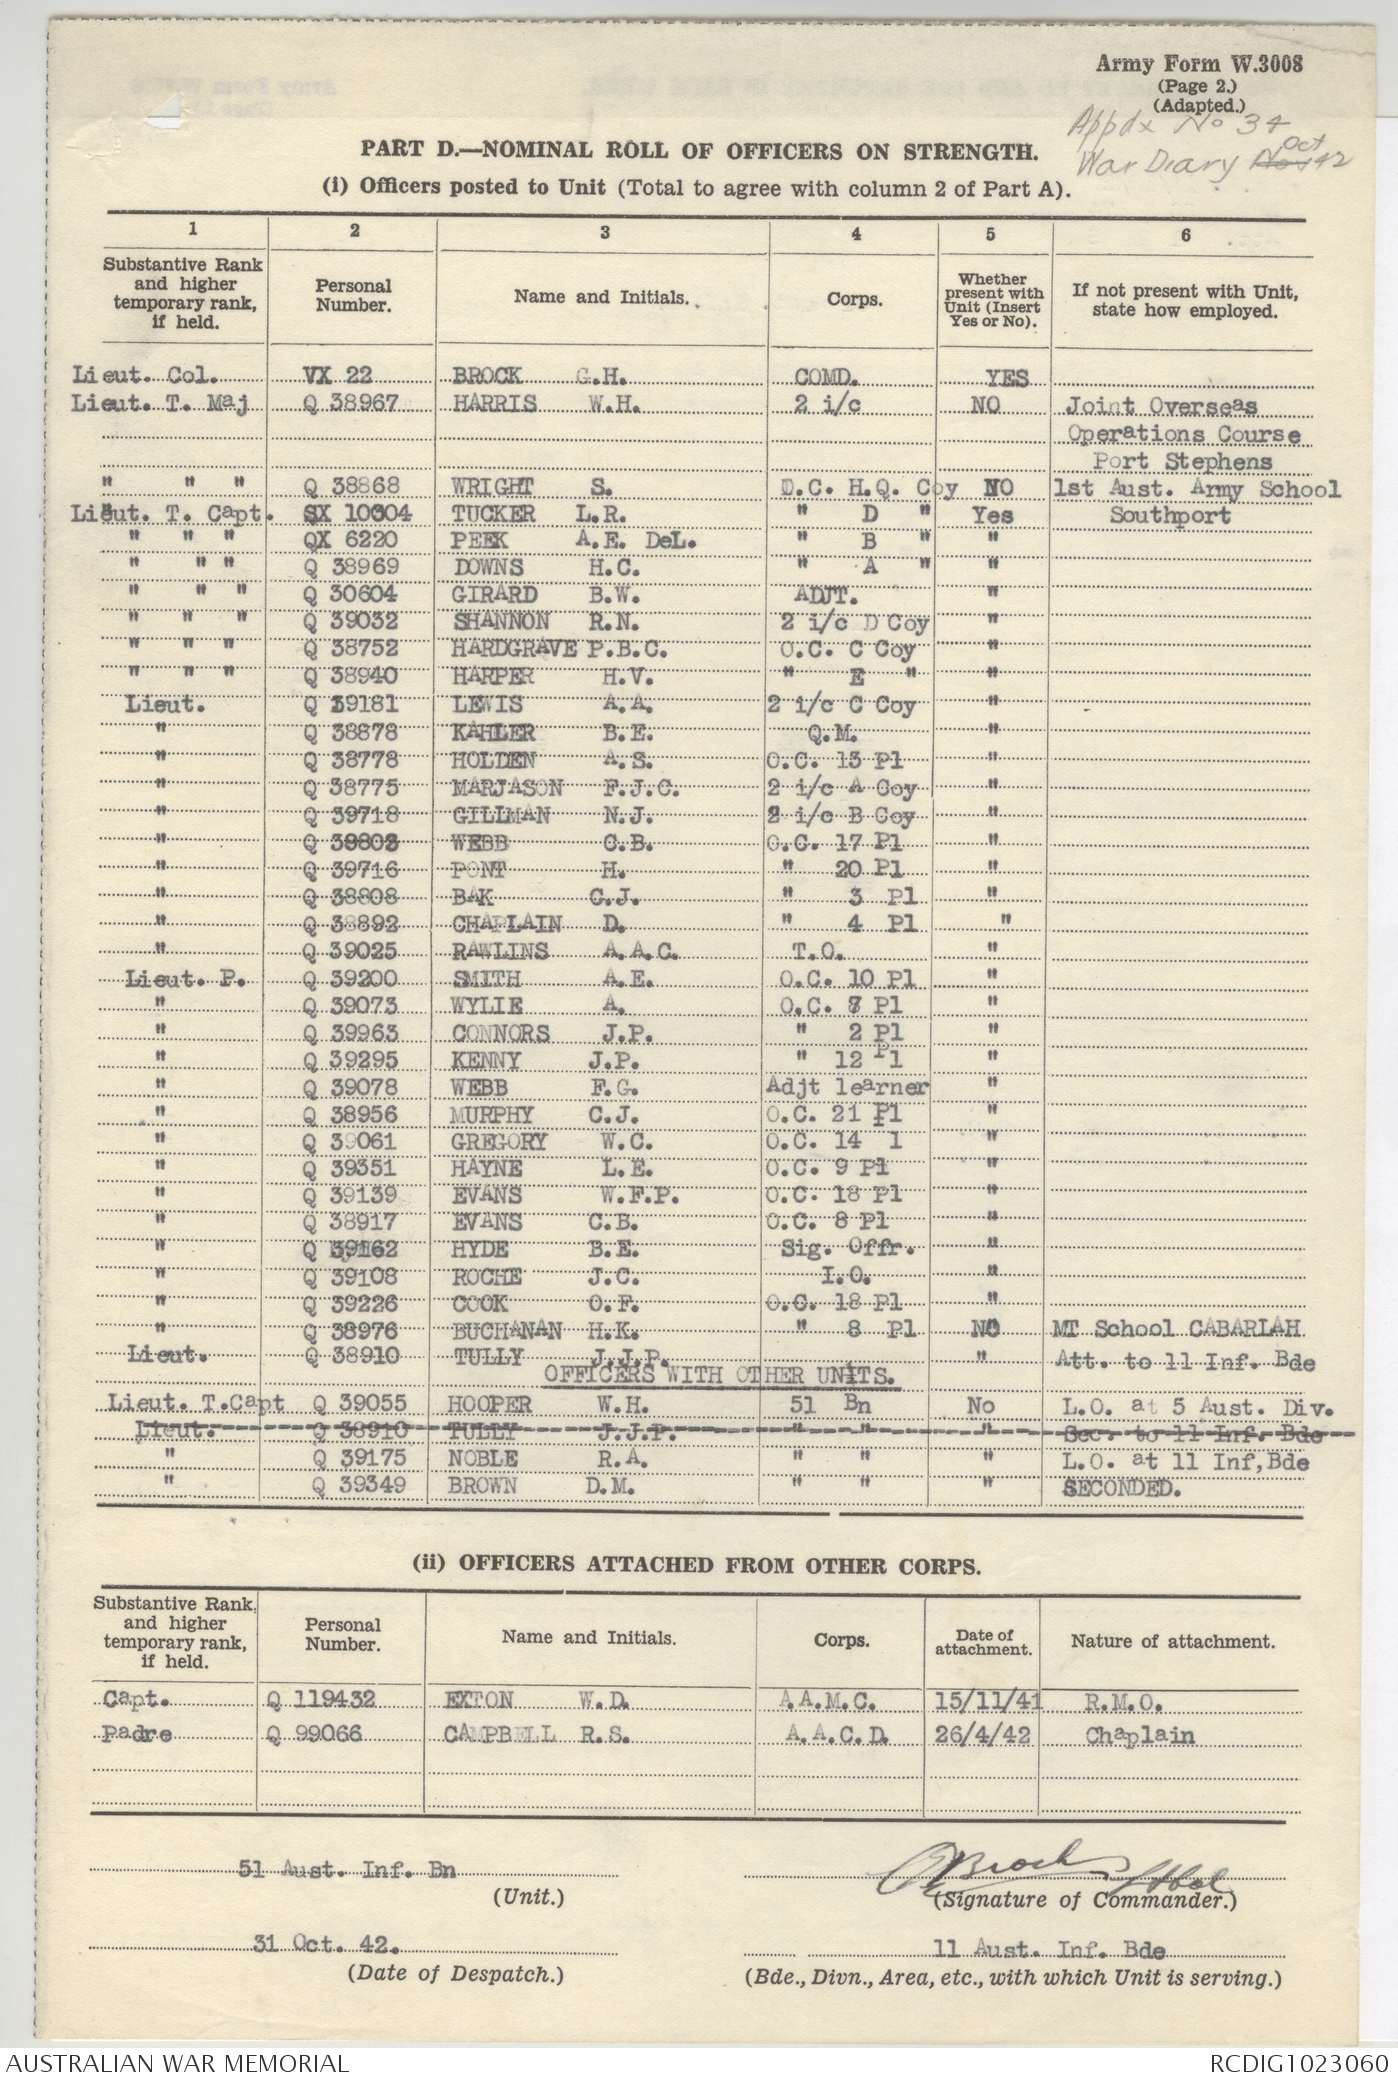 Army Form W.3008
(Page 2.)
(Adapted.)
Appdx No 34
War Diary Nov Oct 42
PART D.—NOMINAL ROLL OF OFFICERS ON STRENGTH.
(i) Officers posted to Unit (Total to agree with column 2 of Part A).
1 2 3 4 5 6
Substantive Rank and higher temporary rank, if held. Personal Number. Name and Initials. Corps. Whether present with Unit (Insert Yes or No). If not present with Unit, state how employed.
Lieut. Col. VX 22 BROCK G.H. COMD. YES
Lieut. T. Maj Q 38967 HARRIS W.H. 2 i/c NO Joint Overseas
Operations Course
Port Stephens
" " " Q 38868 WRIGHT S. O.C. H.Q. Coy NO 1st Aust. Army School
Lieut. T. Capt. SX 10604 TUCKER L.R. " D " Yes Southport
" " " QX 6220 PEEK A.E. DeL. " B " "
" " " Q 38969 DOWNS H.C. " A " "
" " " Q 30604 GIRARD B.W. ADJT. "
" " " Q 39032 SHANNON R.N. 2 i/c D Coy "
" " " Q 38752 HARDGRAVE P.B.C. O.C. C Coy "
" " " Q 38940 HARPER H.V. " E " "
Lieut. Q 39181 LEWIS A.A. 2 i/c C Coy "
" Q 38878 KAHLER B.E. Q.M. "
" Q 38778 HOLDEN A.S. O.C. 13 Pl "
" Q 38775 MARJASON F.J.C. 2 i/c A Coy "
" Q 39718 GILLMAN N.J. 2 i/c B Coy "
" Q 39803 WEBB C.B. O.C. 17 Pl "
" Q 39716 PONT H. " 20 Pl "
" Q 38808 BAK C.J. " 3 Pl "
" Q 38892 CHAPLAIN D. " 4 Pl "
" Q 39025 RAWLINS A.A.C. T.O. "
Lieut. P. Q 39200 SMITH A.E. O.C. 10 Pl "
" Q 39073 WYLIE A. O.C. 7 Pl "
" Q 39963 CONNORS J.P. " 2 Pl "
" Q 39295 KENNY J.P. " 12 Pl "
" Q 39078 WEBB F.G. Adjt learner "
" Q 38956 MURPHY C.J. O.C. 21 Pl "
" Q 39061 GREGORY W.C. O.C. 14 l "
" Q 39351 HAYNE L.E. O.C. 9 Pl "
" Q 39139 EVANS W.F.P. O.C. 18 Pl "
" Q 38917 EVANS C.B. O.C. 8 Pl "
" Q 39162 HYDE B.E. Sig. Offr. "
" Q 39108 ROCHE J.C. I.O. "
" Q 39226 COOK O.F. O.C. 18 Pl "
" Q 38976 BUCHANAN H.K. " 8 Pl NO MT School CABARLAH
Lieut. Q 38910 TULLY J.J.P. " Att. to 11 Inf. Bde
OFFICERS WITH OTHER UNITS.
Lieut. T.Capt Q 39055 HOOPER W.H. 51 Bn No L.O. at 5 Aust. Div.
Lieut. Q 38910 TULLY J.J.P. " " " Sec. to 11 Inf. Bde
" Q 39175 NOBLE R.A. " " " L.O. at 11 Inf,Bde
" Q 39349 BROWN D.M. " " " SECONDED.
(ii) OFFICERS ATTACHED FROM OTHER CORPS.
Substantive Rank, and higher temporary rank, if held. Personal Number. Name and Initials. Corps. Date of attachment. Nature of attachment.
Capt. Q 119432 EXTON W.D. A.A.M.C. 15/11/41 R.M.O.
Padre Q 99066 CAMPBELL R.S. A.A.C.D. 26/4/42 Chaplain
51 Aust. Inf. Bn
(Unit.)
GHBrock Lt Col
(Signature of Commander.)
31 Oct. 42.
(Date of Despatch.)
11 Aust. Inf. Bde
(Bde., Divn., Area, etc., with which Unit is serving.)
AUSTRALIAN WAR MEMORIAL
RCDIG1023060